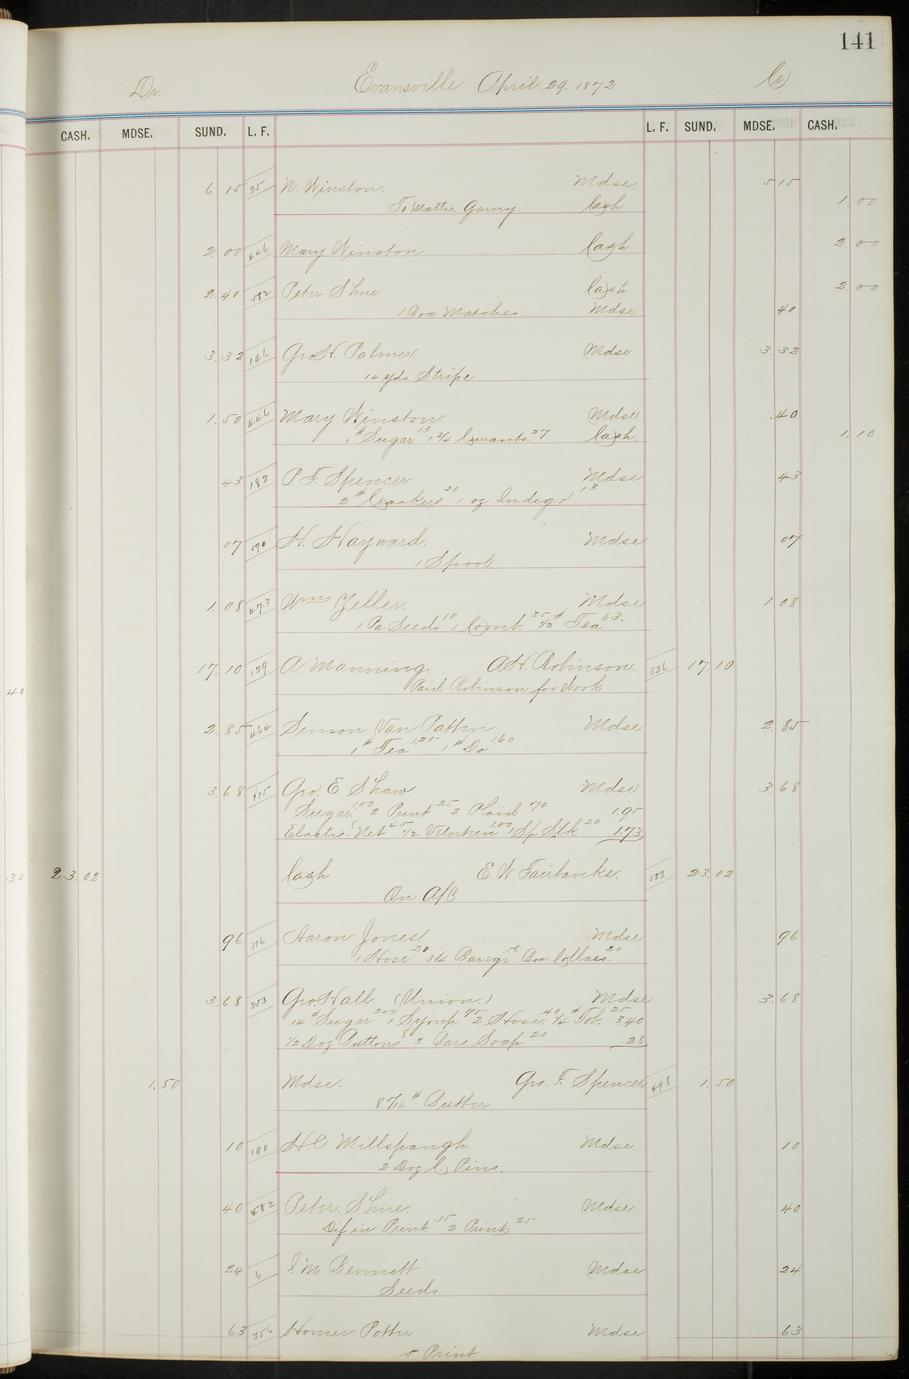 141
Dr. Evansville April. 29. 1872 Cr
CASH. MDSE. SUND. L. F. L. F. SUND. MDSE. CASH.
6 15 25 N. Winston. Mdse 5 15
To Mattie Garvey. Cash 1.00
2.00 446 Mary Winston Cash 2.00
2.40 582 Peter Shue Cash 2.00
1 Box Matches Mdse 40
3.32 146 Geo H. Palmer. Mdse 3.32
14 yds Stripe
1.50 446 Mary Winston Mdse .40
1# Sugar 13 1 3/4 Currants 27 Cash. 1.10
43 182 P. F. Spencer. Mdse 43
2# Crackers 30 1 oz Indigo 13
07 590 H. Hayward. Mdse 07
1 Spool
1.08 473 Wm Zeller. Mdse 1.08
1 Pa Seeds 10 1 Comb 35 1/2# Tea 63.
17.10 129 A. Manning. A. H. Robinson. 326 17.10
Paid Robinson for Work
40
2.85 464 Simon Van Patten Mdse 2.85
1# Tea 1.25 1# Do 1.60
3.68 415 Geo. E Shaw Mdse 3.68
Sugar 1.00 2 Print 25 2 Plaid 70 1.95
Elastic 8 Net 45 1/2 Velveteen 1.00 1 Sp Silk 20 1.73
30 23.02 Cash. E. W. Fairbanks. 23.02
On A/C
96 316 Aaron Jones Mdse 96
1 Hose 20 3/4 Barege Box Collars 20
3.68 353 Geo. Hall. (Union.) Mdse 3.68
14# Sugar 200 1 Syrup 75 2 Hose. 40 1/4# Tob. 25 3.40
1/2 Doz Buttons 8 2 Bars Soap. 20 .28
1.50 Mdse. Geo. F. Spencer 498 1.50
8 7/16# Butter
10 190 H. C. Millspaugh Mdse 10
2 Doz C. Pins.
40 582 Peter Shue. Mdse 40
Dif in Print 15 2 Print 25
24 6 I. M. Bennett Mdse 24
Seeds
63 356 Homer Potter Mdse 63
5 Print